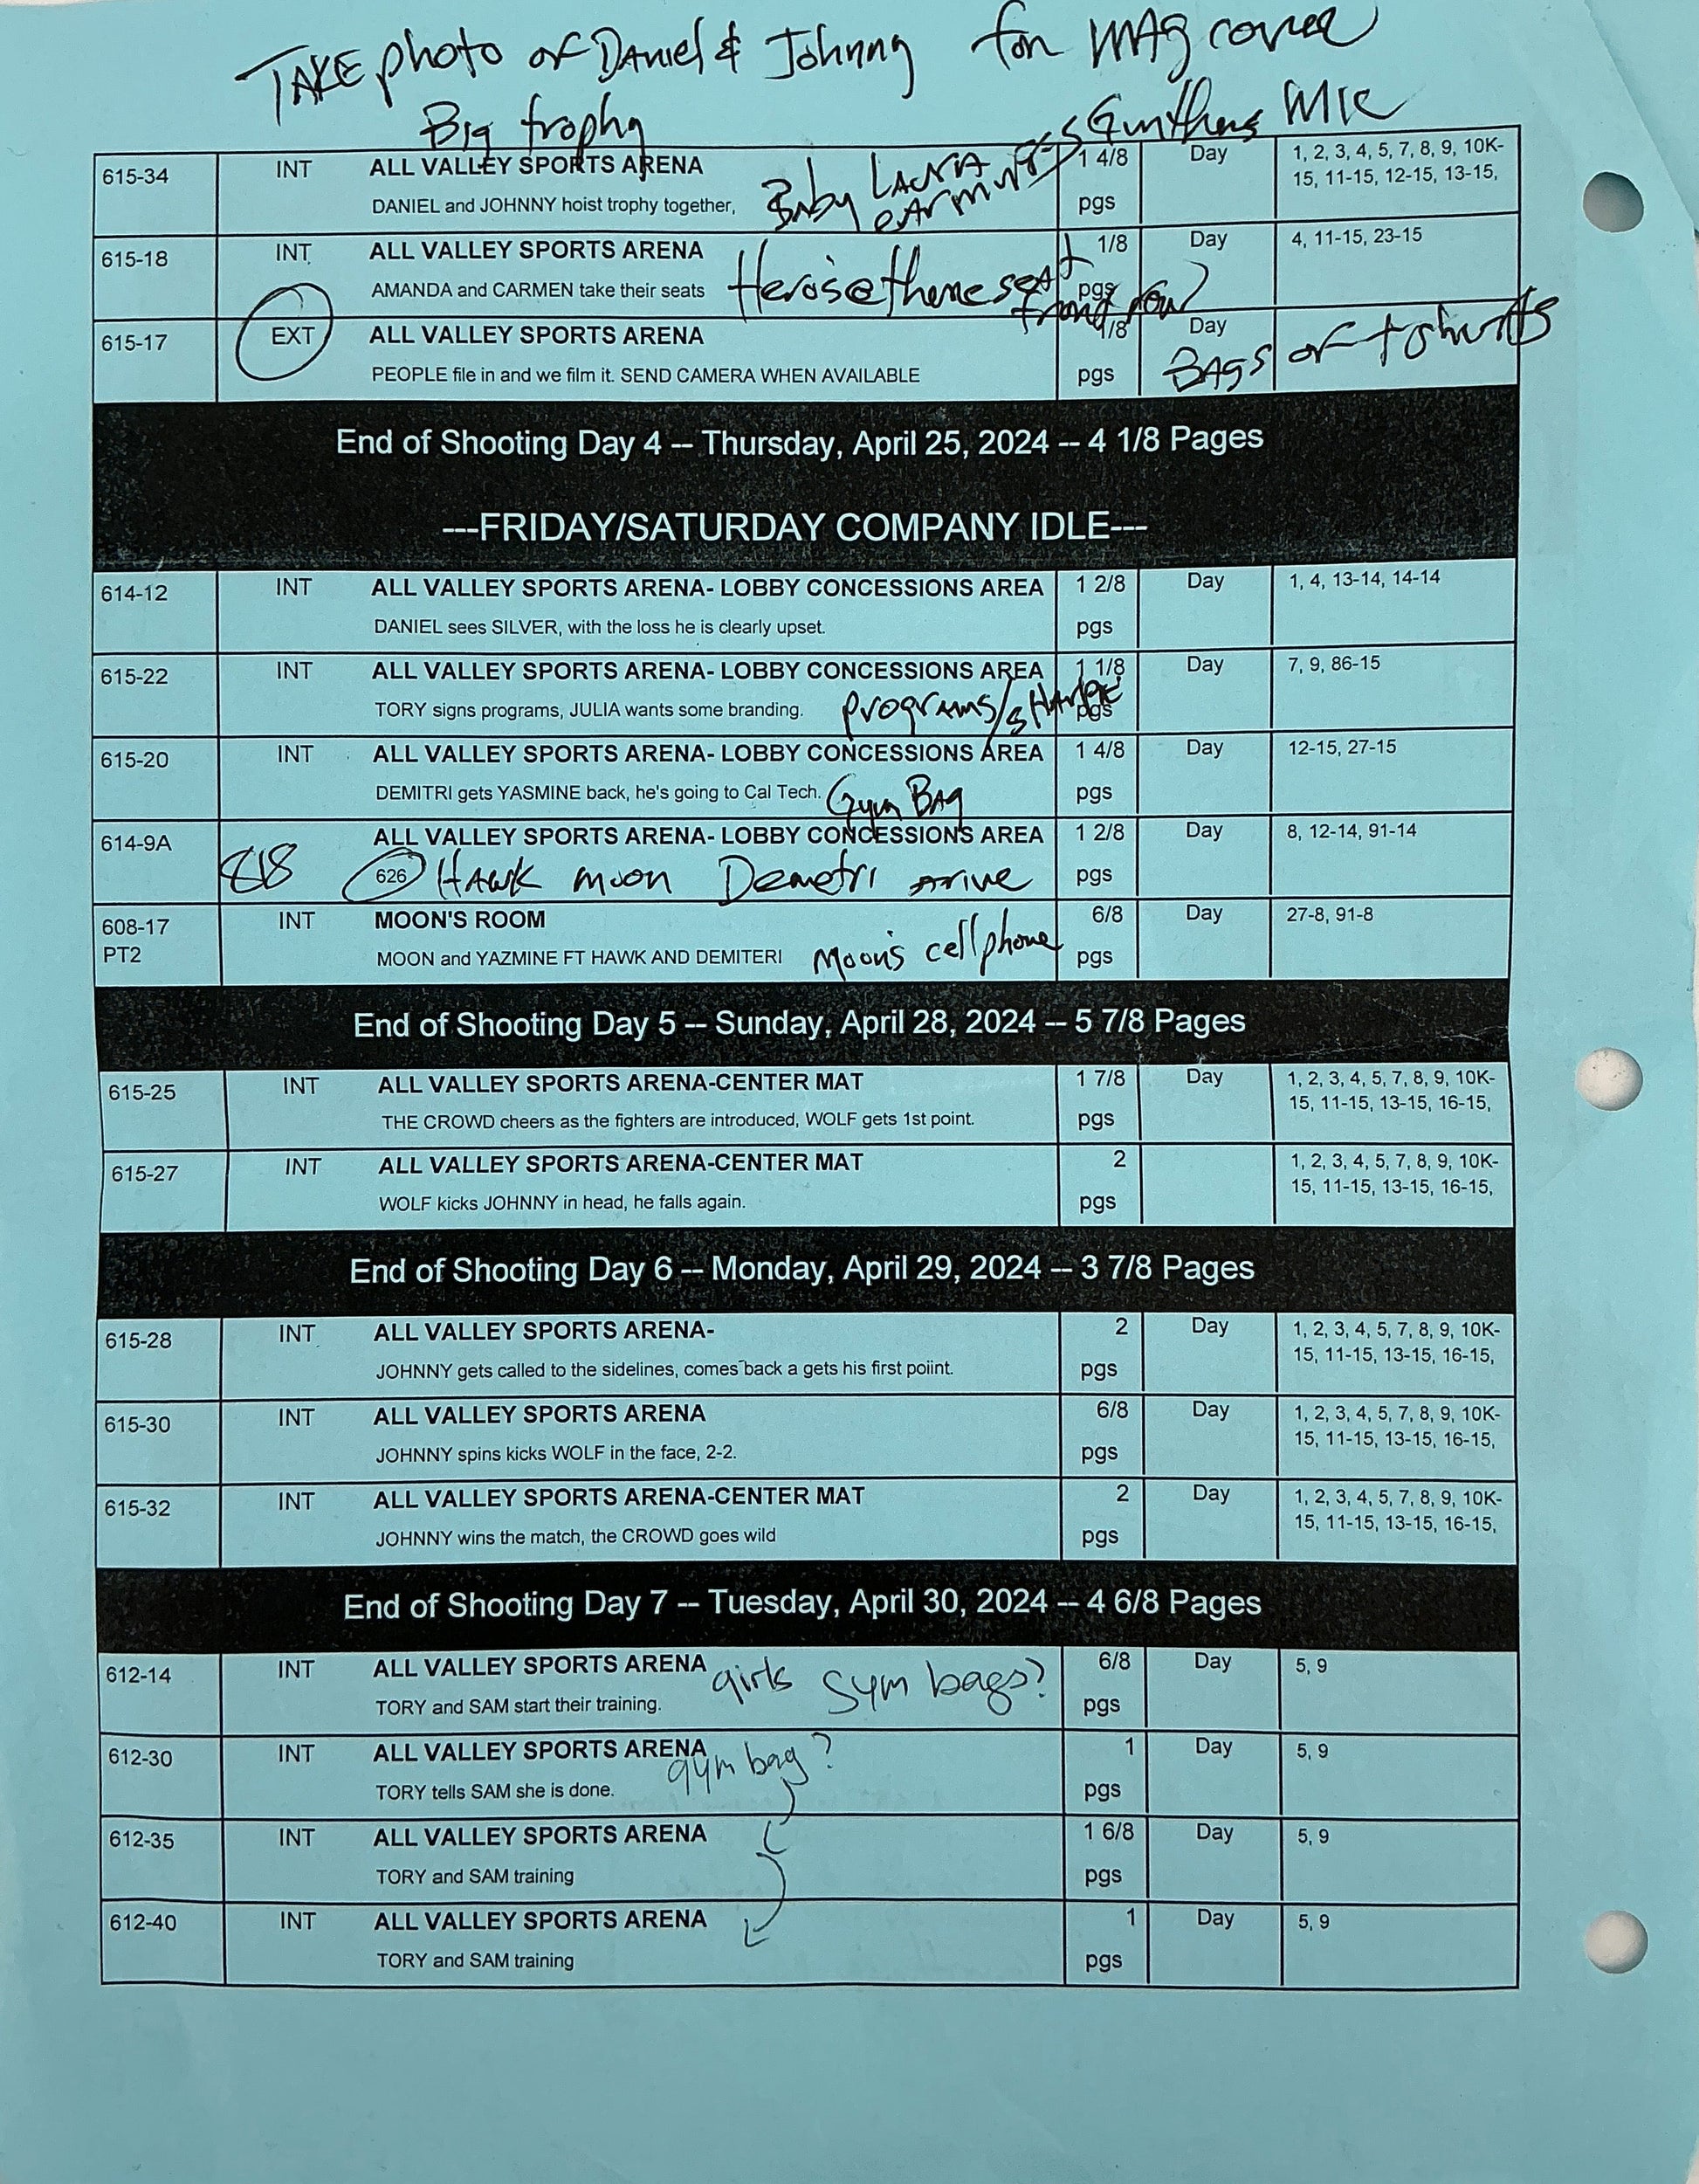 TAKE photo of Daniel & Johnny for MAg cover
Big trophy
Gunthers MIC
615-34 INT ALL VALLEY SPORTS ARENA 1 4/8 Day 1, 2, 3, 4, 5, 7, 8, 9, 10K-
DANIEL and JOHNNY hoist trophy together, Baby LAURA pgs 15, 11-15, 12-15, 13-15,
earmuffs
615-18 INT ALL VALLEY SPORTS ARENA 1/8 Day 4, 11-15, 23-15
AMANDA and CARMEN take their seats pgs
front row
615-17 EXT ALL VALLEY SPORTS ARENA 1/8 Day
PEOPLE file in and we film it. SEND CAMERA WHEN AVAILABLE pgs BAgs of tshirts
End of Shooting Day 4 -- Thursday, April 25, 2024 -- 4 1/8 Pages
---FRIDAY/SATURDAY COMPANY IDLE---
614-12 INT ALL VALLEY SPORTS ARENA- LOBBY CONCESSIONS AREA 1 2/8 Day 1, 4, 13-14, 14-14
DANIEL sees SILVER, with the loss he is clearly upset. pgs
615-22 INT ALL VALLEY SPORTS ARENA- LOBBY CONCESSIONS AREA 1 1/8 Day 7, 9, 86-15
TORY signs programs, JULIA wants some branding. programs/SHARPIE pgs
615-20 INT ALL VALLEY SPORTS ARENA- LOBBY CONCESSIONS AREA 1 4/8 Day 12-15, 27-15
DEMITRI gets YASMINE back, he's going to Cal Tech. Gym BAg pgs
614-9A ALL VALLEY SPORTS ARENA- LOBBY CONCESSIONS AREA 1 2/8 Day 8, 12-14, 91-14
818 626 HAwk moon Demetri arrive pgs
608-17 INT MOON'S ROOM 6/8 Day 27-8, 91-8
PT2 MOON and YAZMINE FT HAWK AND DEMITERI Moon's cellphone pgs
End of Shooting Day 5 -- Sunday, April 28, 2024 -- 5 7/8 Pages
615-25 INT ALL VALLEY SPORTS ARENA-CENTER MAT 1 7/8 Day 1, 2, 3, 4, 5, 7, 8, 9, 10K-
THE CROWD cheers as the fighters are introduced, WOLF gets 1st point. pgs 15, 11-15, 13-15, 16-15,
615-27 INT ALL VALLEY SPORTS ARENA-CENTER MAT 2 1, 2, 3, 4, 5, 7, 8, 9, 10K-
WOLF kicks JOHNNY in head, he falls again. pgs 15, 11-15, 13-15, 16-15,
End of Shooting Day 6 -- Monday, April 29, 2024 -- 3 7/8 Pages
615-28 INT ALL VALLEY SPORTS ARENA- 2 Day 1, 2, 3, 4, 5, 7, 8, 9, 10K-
JOHNNY gets called to the sidelines, comes back a gets his first poiint. pgs 15, 11-15, 13-15, 16-15,
615-30 INT ALL VALLEY SPORTS ARENA 6/8 Day 1, 2, 3, 4, 5, 7, 8, 9, 10K-
JOHNNY spins kicks WOLF in the face, 2-2. pgs 15, 11-15, 13-15, 16-15,
615-32 INT ALL VALLEY SPORTS ARENA-CENTER MAT 2 Day 1, 2, 3, 4, 5, 7, 8, 9, 10K-
JOHNNY wins the match, the CROWD goes wild pgs 15, 11-15, 13-15, 16-15,
End of Shooting Day 7 -- Tuesday, April 30, 2024 -- 4 6/8 Pages
612-14 INT ALL VALLEY SPORTS ARENA girls gym bags? 6/8 Day 5, 9
TORY and SAM start their training. pgs
612-30 INT ALL VALLEY SPORTS ARENA gym bag? 1 Day 5, 9
TORY tells SAM she is done. pgs
612-35 INT ALL VALLEY SPORTS ARENA 1 6/8 Day 5, 9
TORY and SAM training pgs
612-40 INT ALL VALLEY SPORTS ARENA 1 Day 5, 9
TORY and SAM training pgs